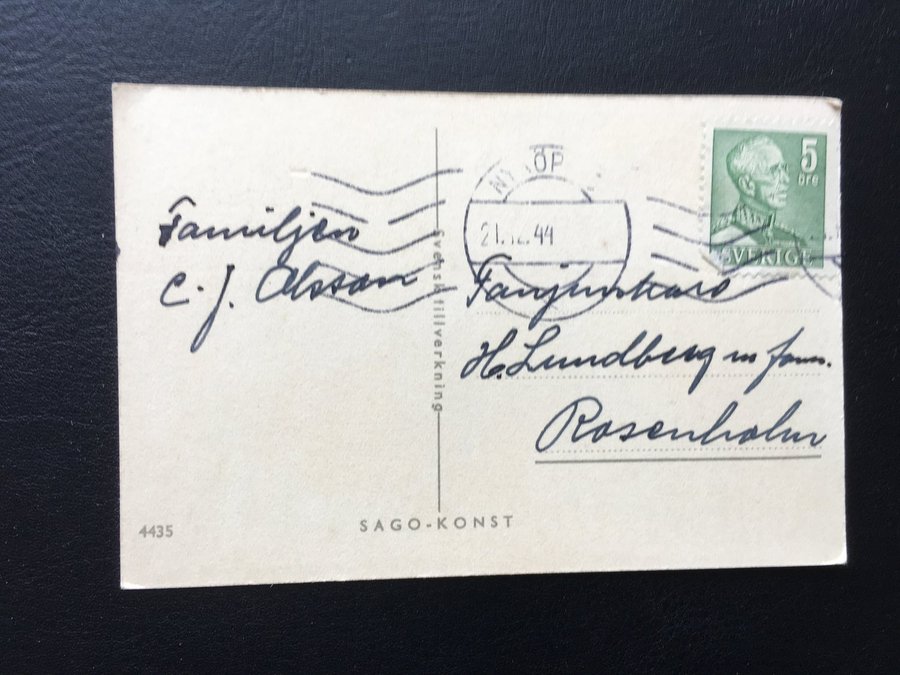 Familjen
C. J. Olsson
Svensk tillverkning
5
öre
SVERIGE
21.12.44
Fanjunkare
H. Lundberg m fam.
Rosenholm
4435
SAGO-KONST